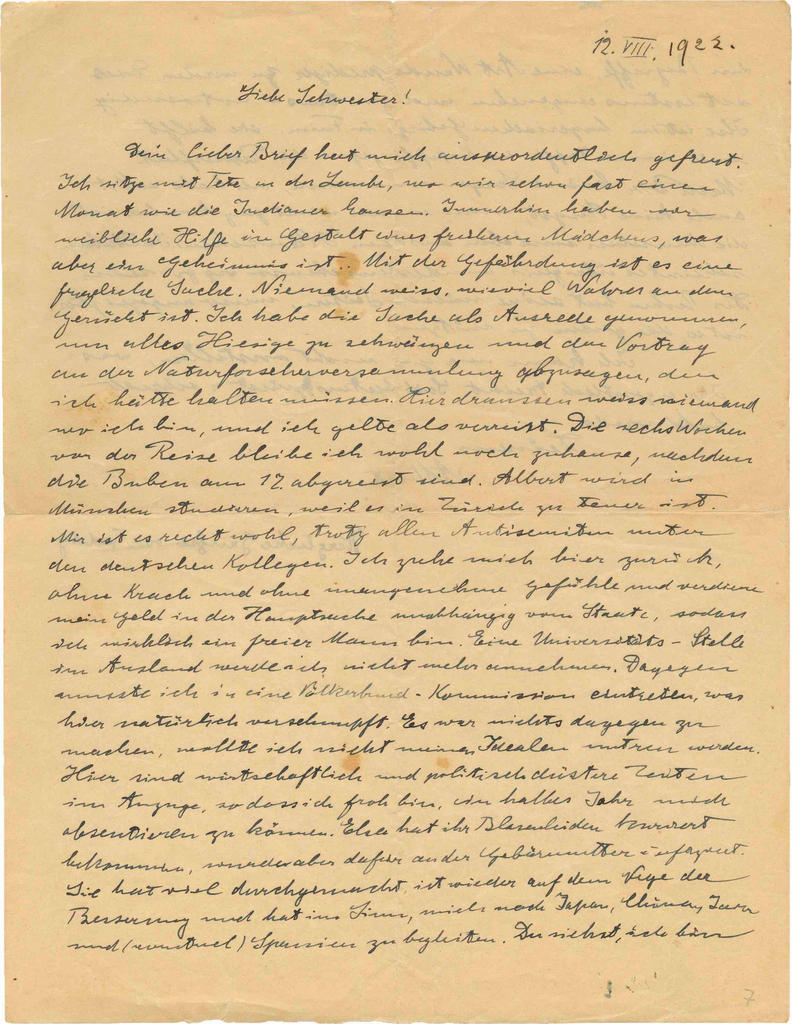 12. VIII. 1922.
Liebe Schwester!
Dein lieber Brief hat mich ausserordentlich gefreut.
Ich sitze mit Tete in der Laube, wo wir schon fast einen
Monat wie die Indianer hausen. Immerhin haben wir
weibliche Hilfe in Gestalt eines früheren Mädchens, was
aber ein Geheimnis ist.. Mit der Gefährdung ist es eine
fragliche Sache. Niemand weiss, wieviel Wahres an dem
Gerücht ist. Ich habe die Sache als Ausrede genommen,
um alles Hiesige zu schwänzen und den Vortrag
an der Naturforscherversammlung abzusagen, den
ich hätte halten müssen. Hier draussen weiss niemand
wo ich bin, und ich gelte als verreist. Die sechs Wochen
vor der Reise bleibe ich wohl noch zuhause, nachdem
die Buben am 17. abgereist sind. Albert wird in
München studieren, weil es in Zürich zu teuer ist.
Mir ist es recht wohl, trotz allen Antisemiten unter
den deutschen Kollegen. Ich ziehe mich hier zurück,
ohne Krach und ohne unangenehme Gefühle und verdiene
mein Geld in der Hauptsache unabhängig vom Staate, sodass
ich wirklich ein freier Mann bin. Eine Universitäts-Stelle
im Ausland werde ich nicht mehr annehmen. Dagegen
musste ich in eine Völkerbund-Kommission eintreten, was
hier natürlich verschnupft. Es war nichts dagegen zu
machen, wollte ich nicht meinen Idealen untreu werden.
Hier sind wirtschaftlich und politisch düstere Zeiten
im Anzuge, sodass ich froh bin, ein halbes Jahr mich
absentieren zu können. Elsa hat ihr Blasenleiden
bekommen, wurde aber dafür an der Gebärmutter
Sie hat viel durchgemacht, ist wieder auf dem Wege der
Besserung und hat im Sinn, mich nach Japan, China, Java
und (eventuel) Spanien zu begleiten. Du siehst, ich bin
7